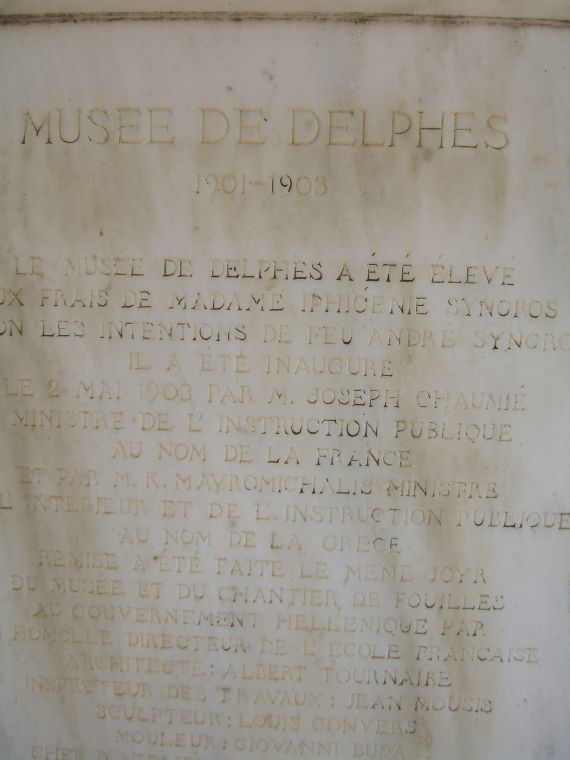 MUSÉE DE DELPHES
1901-1903
LE MUSÉE DE DELPHES A ÉTÉ ÉLEVÉ
UX FRAIS DE MADAME IPHIGÉNIE SYNGROS
ON LES INTENTIONS DE FEU ANDRÉ SYNGRO
IL A ÉTÉ INAUGURE
LE 2 MAI 1903 PAR M. JOSEPH CHAUMIÉ
MINISTRE DE L' INSTRUCTION PUBLIQUE
AU NOM DE LA FRANCE
ET PAR M. K. MAVROMICHALIS MINISTRE
L' INTÉRIEUR ET DE L' INSTRUCTION PUBLIQUE
AU NOM DE LA GRECE
REMISE A ÉTÉ FAITE LE MÊME JOYR
DU MUSÉE ET DU CHANTIER DE FOUILLES
AU GOUVERNEMENT HELLENIQUE PAR
HOMOLLE DIRECTEUR DE L' ECOLE FRANCAISE
ARCHITECTE : ALBERT TOURNAIRE
INSPECTEUR DES TRAVAUX : JEAN MOUSIS
SCULPTEUR : LOUIS CONVERS
MOULEUR : GIOVANNI BUDA
CHEF